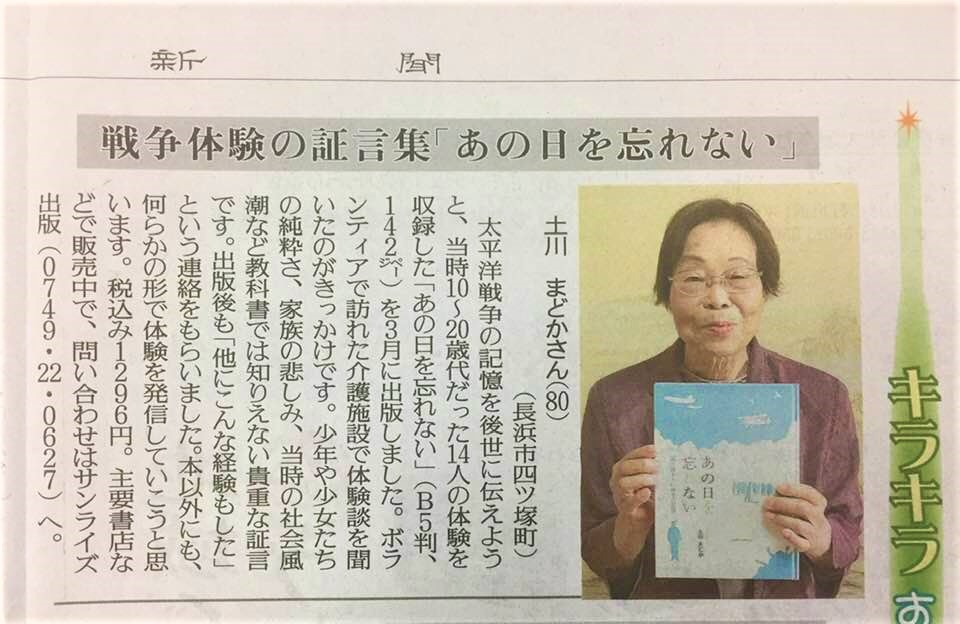 新聞
戦争体験の証言集「あの日を忘れない」
土川 まどかさん(80)
(長浜市四ツ塚町)
太平洋戦争の記憶を後世に伝えよう
と、当時10〜20歳代だった14人の体験を
収録した「あの日を忘れない」(B5判、
142㌻)を3月に出版しました。ボラ
ンティアで訪れた介護施設で体験談を聞
いたのがきっかけです。少年や少女たち
の純粋さ、家族の悲しみ、当時の社会風
潮など教科書では知りえない貴重な証言
です。出版後も「他にこんな経験もした」
という連絡をもらいました。本以外にも、
何らかの形で体験を発信していこうと思
います。税込み1296円。主要書店な
どで販売中で、問い合わせはサンライズ
出版(0749・22・0627)へ。
あの日を
忘れない
キラキラお